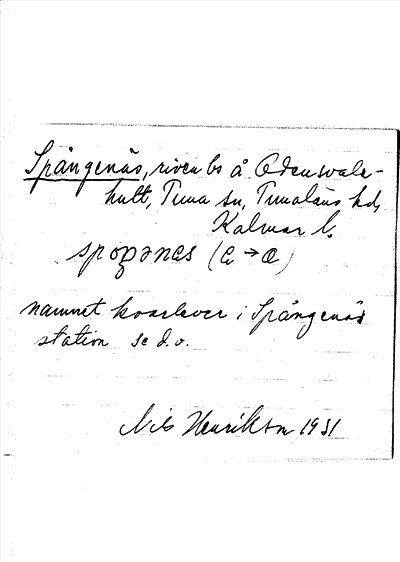 Spångenäs, riven bs å Odensvala-
hult, Tuna sn, Tunaläns hd,
Kalmar l.
spoŋənes (
namnet kvarlever i Spångenäs
station se d. o.
Nils Henrikson 1931